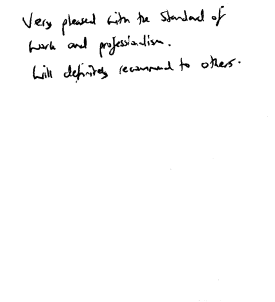 Very pleased with the standard of
work and professionalism.
Will definitely recommend to others.